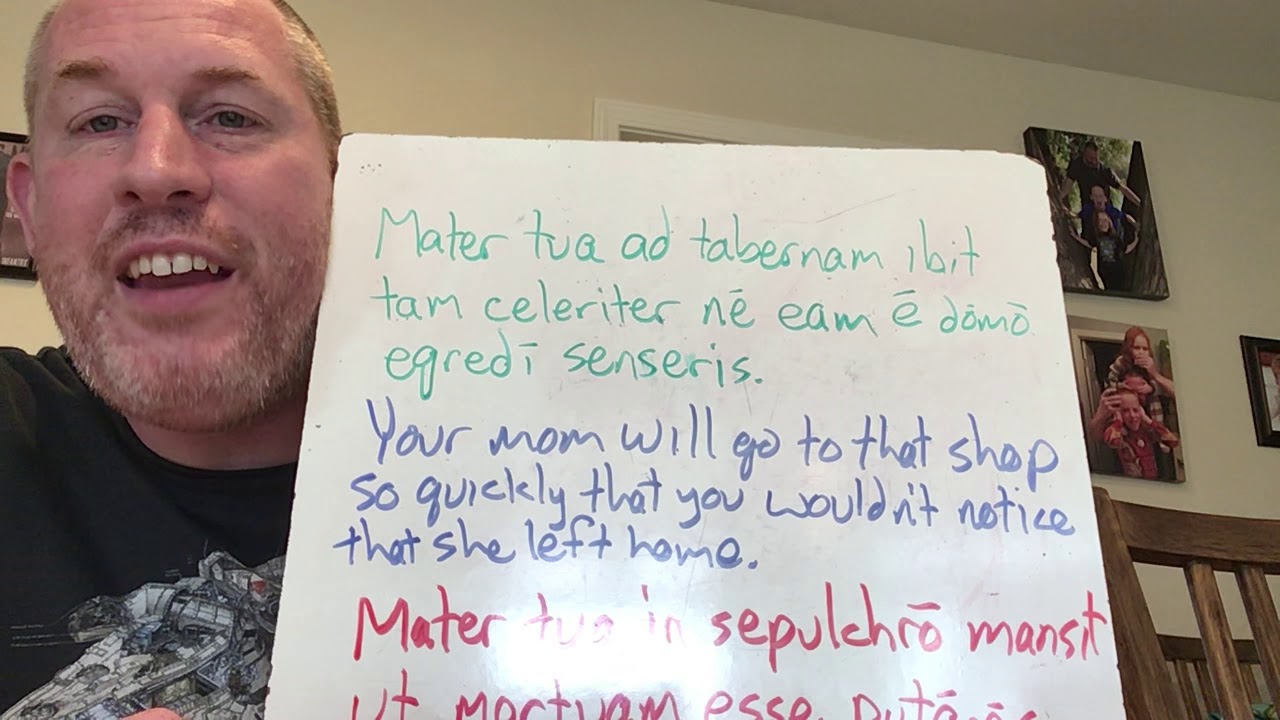 Mater tua ad tabernam ibit
tam celeriter nē eam ē dōmō
egredī senseris.
Your mom will go to that shop
so quickly that you wouldn't notice
that she left home.
Mater tua in sepulchrō mansit
ut mortuam esse
INFANTRY